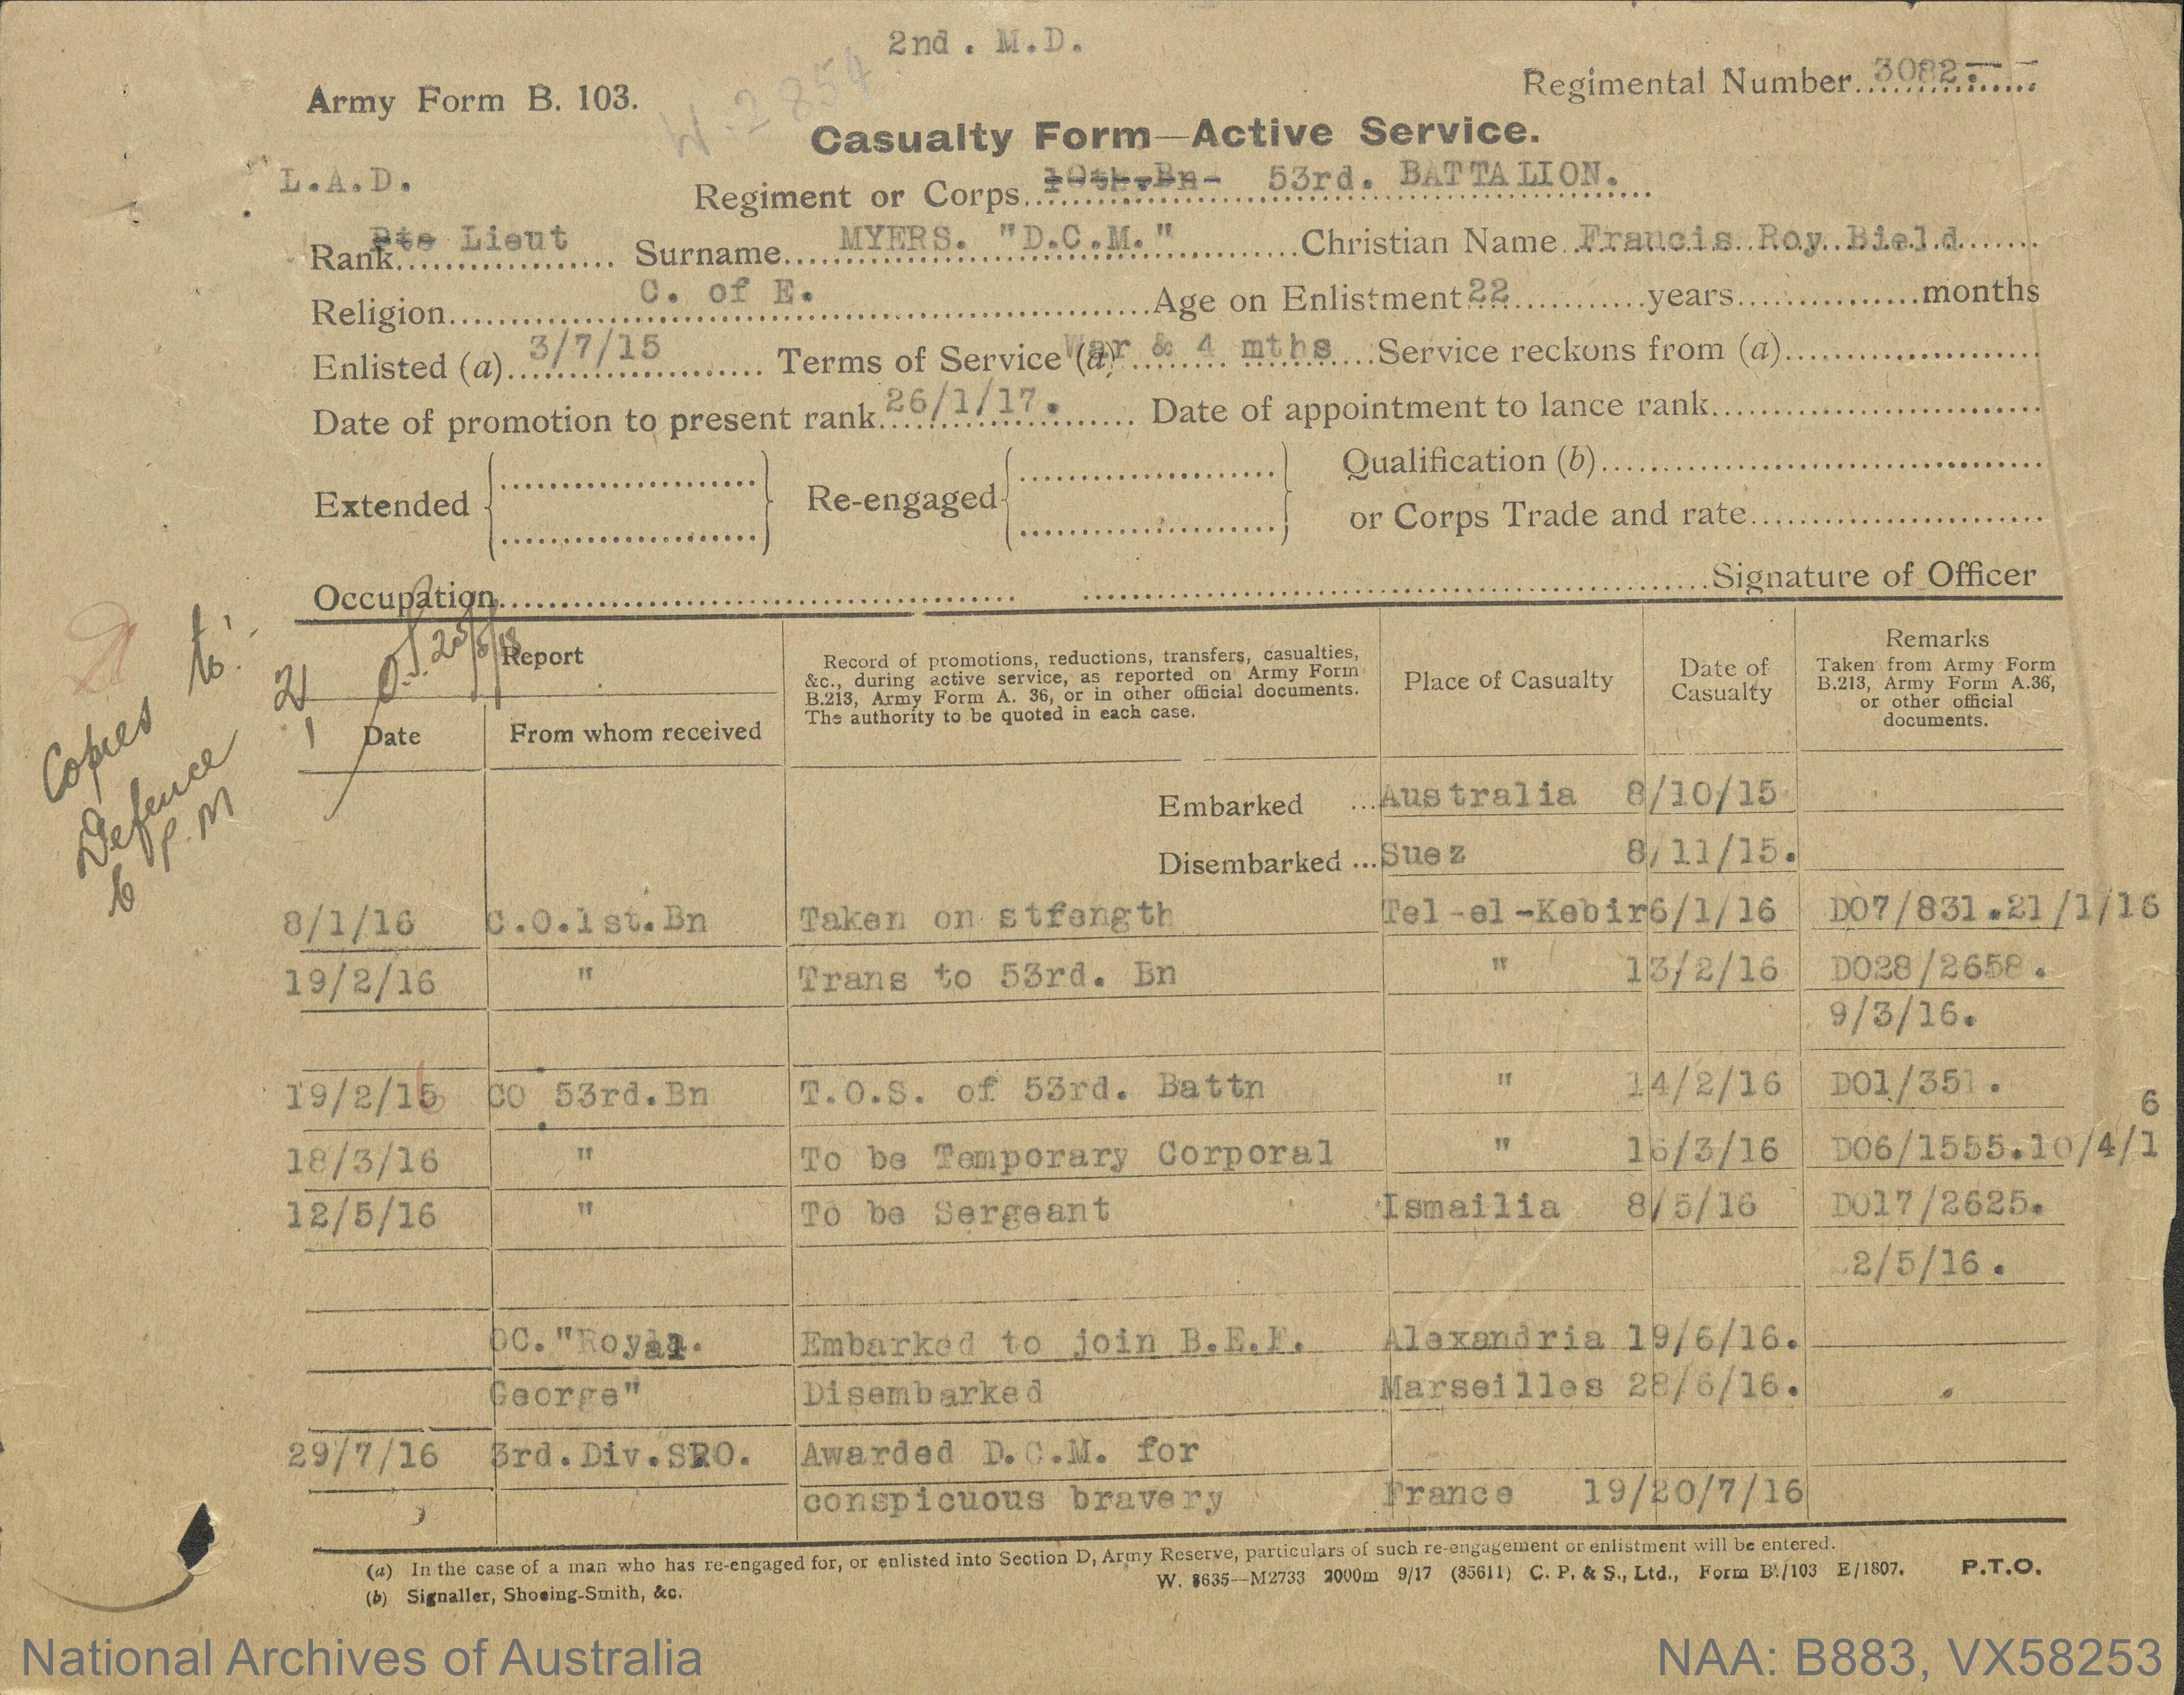 2nd. M.D.
Army Form B. 103.
W.2854.
Regimental Number 3082.
Casualty Form—Active Service.
L.A.D.
Regiment or Corps 10th.Bn- 53rd. BATTALION.
Rank Pte Lieut Surname MYERS. "D.C.M." Christian Name Francis Roy Bield
Religion C. of E. Age on Enlistment 22 years months
Enlisted (a) 3/7/15 Terms of Service (a) War & 4 mths Service reckons from (a)
Date of promotion to present rank 26/1/17. Date of appointment to lance rank
Extended Re-engaged Qualification (b)
or Corps Trade and rate
Occupation Signature of Officer
Copies to:
Defence
P.M
Report
Date From whom received
Record of promotions, reductions, transfers, casualties, &c., during active service, as reported on Army Form B.213, Army Form A. 36, or in other official documents. The authority to be quoted in each case.
Place of Casualty
Date of Casualty
Remarks
Taken from Army Form B.213, Army Form A.36, or other official documents.
Embarked ... Australia 8/10/15
Disembarked ... Suez 8/11/15.
8/1/16 C.O.1st.Bn Taken on strength Tel-el-Kebir 6/1/16 DO7/831.21/1/16
19/2/16 " Trans to 53rd. Bn " 13/2/16 DO28/2658.
9/3/16.
19/2/16 CO 53rd.Bn T.O.S. of 53rd. Battn " 14/2/16 DO1/351.
18/3/16 " To be Temporary Corporal " 16/3/16 DO6/1555.10/4/16
12/5/16 " To be Sergeant Ismailia 8/5/16 DO17/2625.
2/5/16.
OC."Royal Embarked to join B.E.F. Alexandria 19/6/16.
George" Disembarked Marseilles 28/6/16.
29/7/16 3rd.Div.SRO. Awarded D.C.M. for
conspicuous bravery France 19/20/7/16
(a) In the case of a man who has re-engaged for, or enlisted into Section D, Army Reserve, particulars of such re-engagement or enlistment will be entered.
W. 8635—M2733 2000m 9/17 (35611) C. P. & S., Ltd., Form B./103 E/1807. P.T.O.
(b) Signaller, Shoeing-Smith, &c.
National Archives of Australia NAA: B883, VX58253